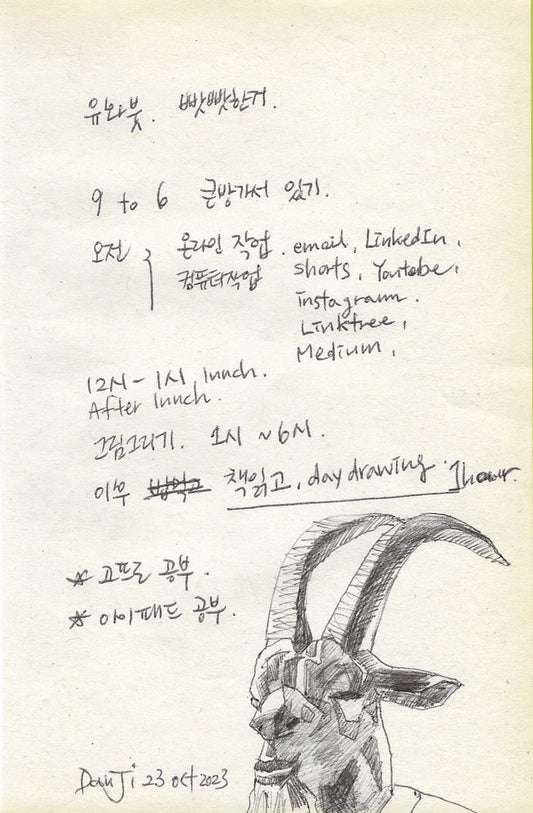 유화붓. 빳빳한거.
9 to 6 큰방가서 있기.
오전 온라인 작업. email, LinkedIn,
컴퓨터작업 shorts, Youtobe,
instagram.
Linktree,
Medium,
12시 - 1시 lunch.
After lunch.
그림그리기. 1시 ~ 6시.
이후 밥먹고 책읽고, day drawing. 1hour.
☆ 고프로 공부.
☆ 아이패드 공부.
DanJi 23 oct 2023